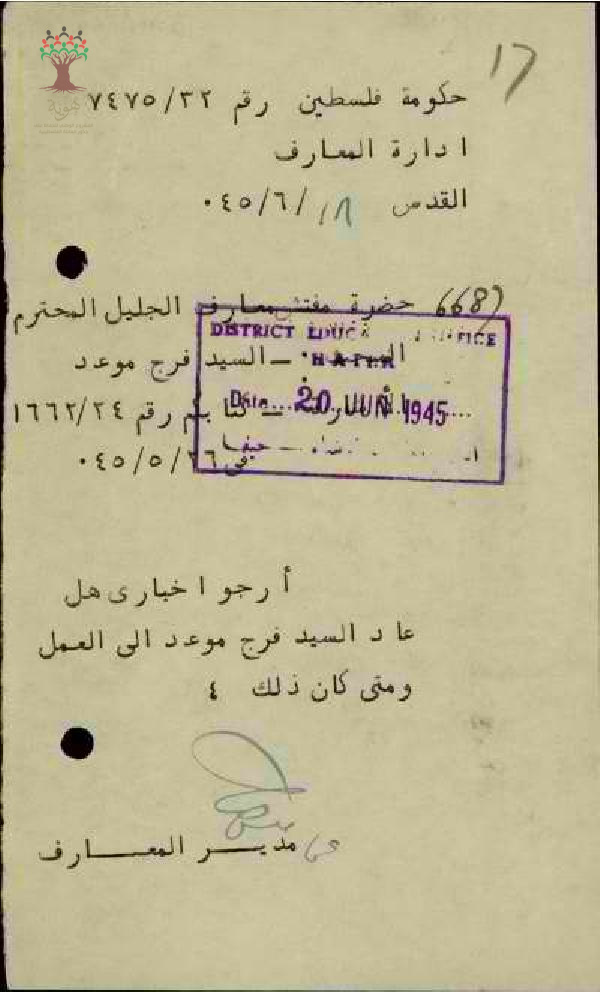 17
حكومة فلسطين رقم ٧٤٧٥/٣٢
ادارة المعارف
القدس ١٨/٦/٠٤٥
668)
حضرة مفتش معارف الجليل المحترم
DISTRICT EDUC OFFICE
HAIFA
Date 20 JUN 1945
حيفا
السيد فرج موعد
كتابكم رقم ١٦٦٢/٢٤
في ٢٦/٥/٠٤٥
أرجو اخبارى هل
عاد السيد فرج موعد الى العمل
ومتى كان ذلك ٤
ع/ مديـر المعـــارف